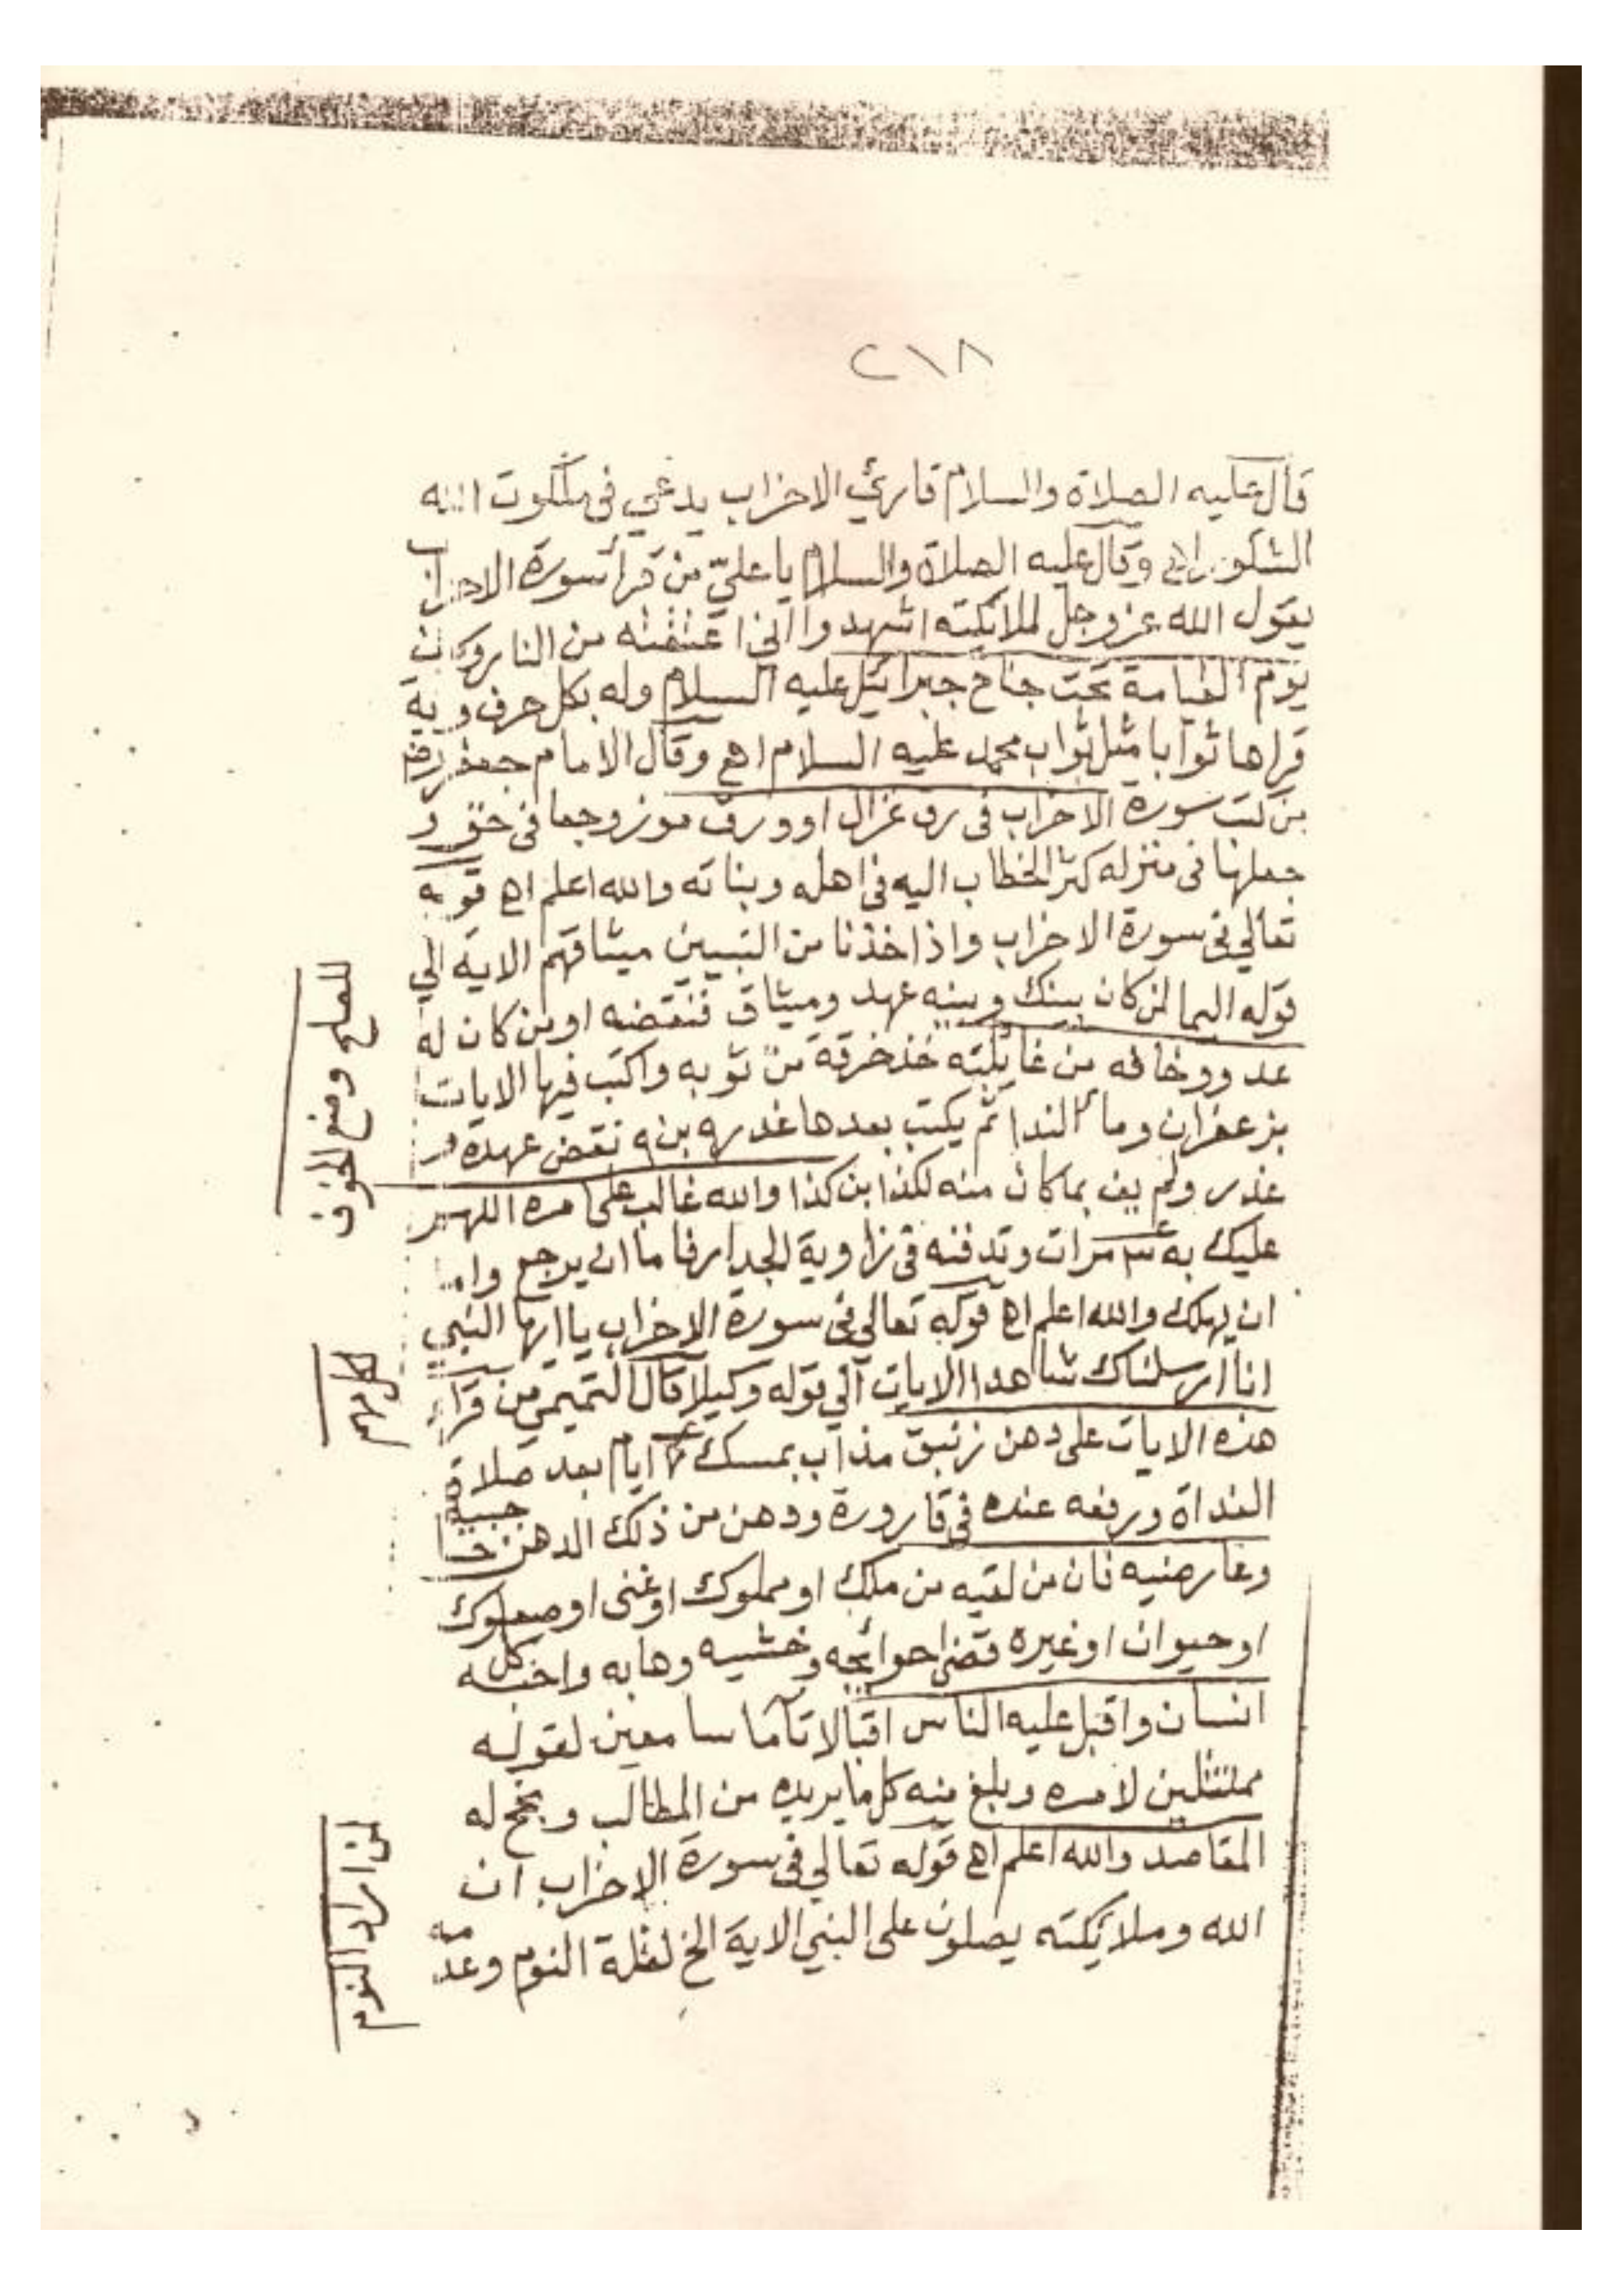 ٢١٨
قال عليه الصلاة والسلام قارئ الاحزاب يدعي في ملكوت الله
الشكور اهـ وقال عليه الصلاة والسلام يا علي من قرأ سورة الاحزاب
يقول الله عز وجل لملائكته اشهدوا اني اعتقته من النار وكان
يوم القيامة تحت جناح جبرائيل عليه السلام وله بكل حرف وية
قراها ثوابا مثل ثواب محمد عليه السلام اهـ وقال الامام جعفر رضه
من كتب سورة الاحزاب في رق غزال او ورق موز وجعا في حق و
جعلها في منزله كثر الخطاب اليه في اهله وبناته والله اعلم اهـ قوله
تعالي في سورة الاحزاب واذ اخذنا من النبيين ميثاقهم الاية الي
قوله اليما لمن كان بينك وبينه عهد وميثاق فنقضه او من كان له
عدو وخافه من غائلته خذ خرقة من ثوبه واكتب فيها الايات
بزعفران وما الندا ثم يكتب بعدها غدر ٩ بن ٩ نقض عهده و
غدر ولم يف بما كان منه لكذا ابن كذا والله غالب على امره اللهم
عليك به ٣ مرات وتدفنه في زاوية الجدار فاما ان يرجع واما
ان يهلك والله اعلم اهـ قوله تعالي في سورة الاحزاب يا ايها النبي
انا ارسلناك شاهدا الايات الي قوله وكيلا قال التميمي من قرأ
هذه الايات على دهن زنبق مذاب بمسك ايام بعد صلاة
الغداة ورفعه عنده في قارورة ودهن من ذلك الدهن جبينه
وعارضيه فان من لقيه من ملك او مملوك او غنى او صعلوك
او حيوان او غيره قضى حوائجه وخشيه وهابه واحبه كل
انسان واقبل عليه الناس اقبالا تاما سامعين لقوله
ممتثلين لامره وبلغ منه كل ما يريده من المطالب ونجح له
المقاصد والله اعلم اهـ قوله تعالي في سورة الاحزاب ان
الله وملائكته يصلون على النبي الاية الخ لقلة النوم وعدمه
للصلح ومنع الخوف
لمن اراد النوم